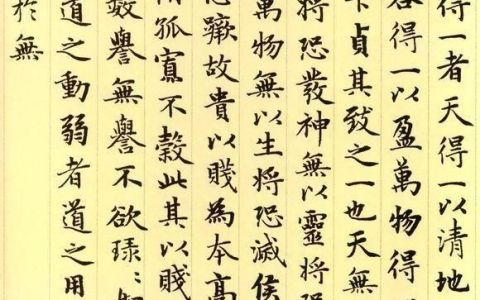 得一者天得一以清地
谷得一以盈萬物得一
下貞其致之一也天無
將恐發神無以靈將恐
萬物無以生將恐滅侯
恐蹶故貴以賤為本高
謂孤寡不穀此其以賤
數譽無譽不欲琭:
道之動弱者道之用
於無